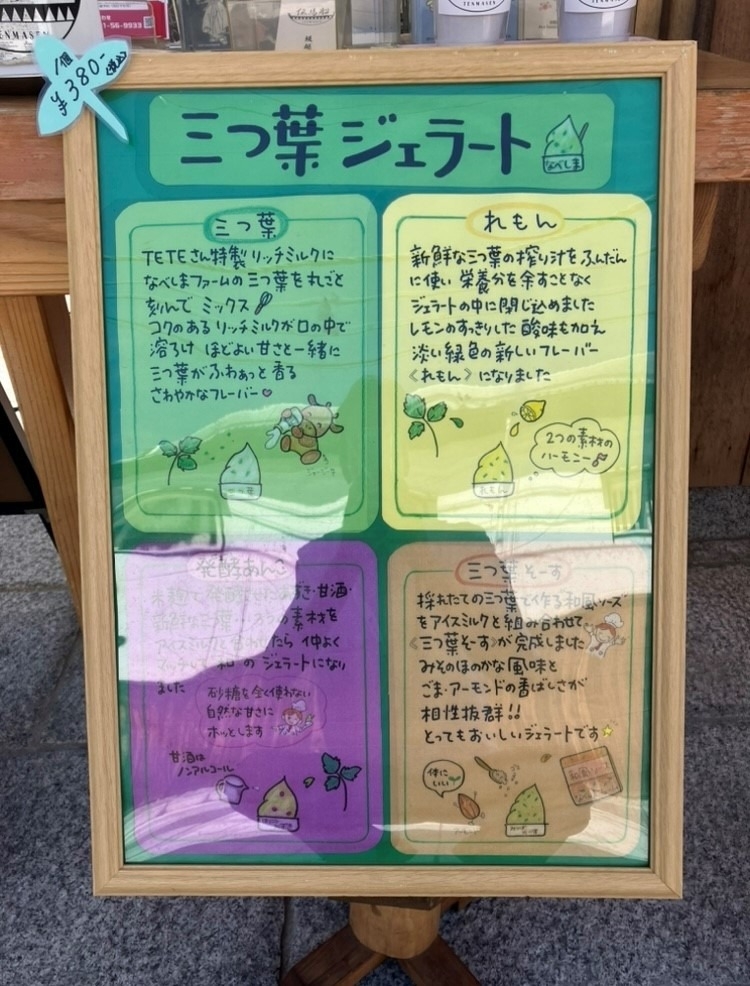 TENMASEN
1個
¥380-
(税込)
三つ葉 ジェラート
なべしま
三つ葉
TETEさん特製 リッチミルクに
なべしまファームの 三つ葉を丸ごと
刻んで ミックス
コクのある リッチミルクが口の中で
溶ろけ ほどよい甘さと一緒に
三つ葉がふわぁっと香る
さわやかなフレーバー♥
三つ葉
れもん
新鮮な三つ葉の搾り汁をふんだん
に使い 栄養分を余すことなく
ジェラートの中に閉じ込めました
レモンのすっきりした 酸味も加え
淡い緑色の新しいフレーバー
《れもん》になりました
2つの素材の
ハーモニー♪
れもん
発酵あんこ
米麹で発酵させたあずき・甘酒・
新鮮な三つ葉… 3つの素材を
アイスミルクと合わせたら 仲よく
マッチして "和"の ジェラートになり
ました
砂糖を全く使わない
自然な甘さに
ホッとします
甘酒は
ノンアルコール
三つ葉そーす
採れたての三つ葉で作る和風ソース
をアイスミルクと組み合わせて
《三つ葉そーす》が完成しました
みそのほのかな風味と
ごま・アーモンドの香ばしさが
相性抜群!!
とってもおいしいジェラートです
体に
いい
和風ソース